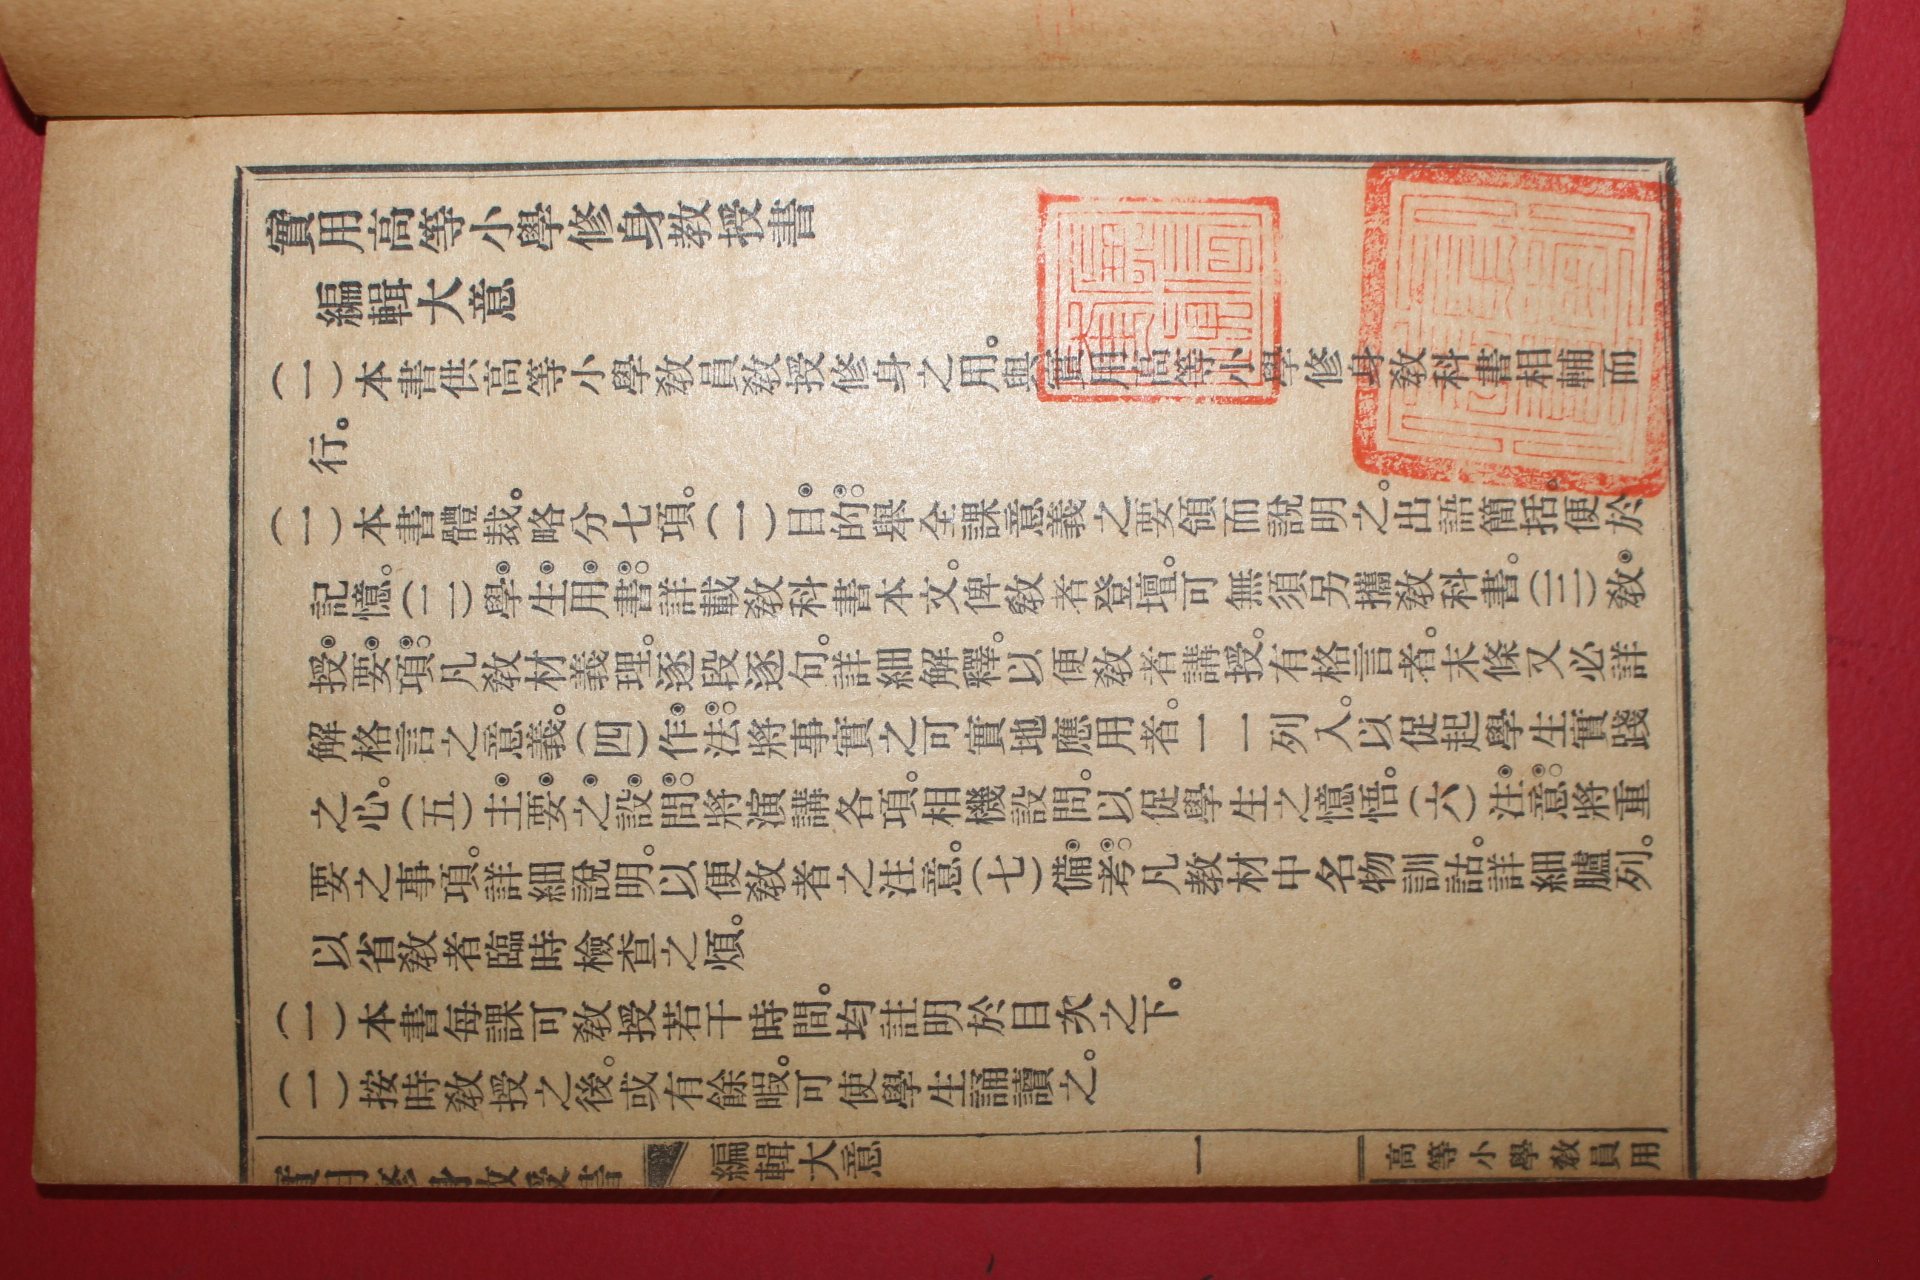 實用高等小學修身教授書
編輯大意
(一)本書供高等小學教員教授修身之用。與實用高等小學修身教科書相輔而
行。
(一)本書體裁。略分七項。(一)目的舉全課意義之要領而說明之。出語簡括。便於
記憶。(二)學生用書詳載教科書本文。俾教者登壇。可無須另攜教科書。(三)教
授要項凡教材義理。逐段逐句。詳細解釋。以便教者講授。有格言者。末條又必詳
解格言之意義。(四)作法將事實之可實地應用者。一一列入。以促起學生實踐
之心。(五)主要之設問將演講各項。相機設問。以促學生之憶悟。(六)注意將重
要之事項。詳細說明。以便教者之注意。(七)備考凡教材中名物訓詁。詳細臚列。
以省教者臨時檢查之煩。
(一)本書每課可教授若干時間。均註明於目次之下。
(一)按時教授之後。或有餘暇。可使學生誦讀之。
實用修身教授書
編輯大意
一
高等小學教員用